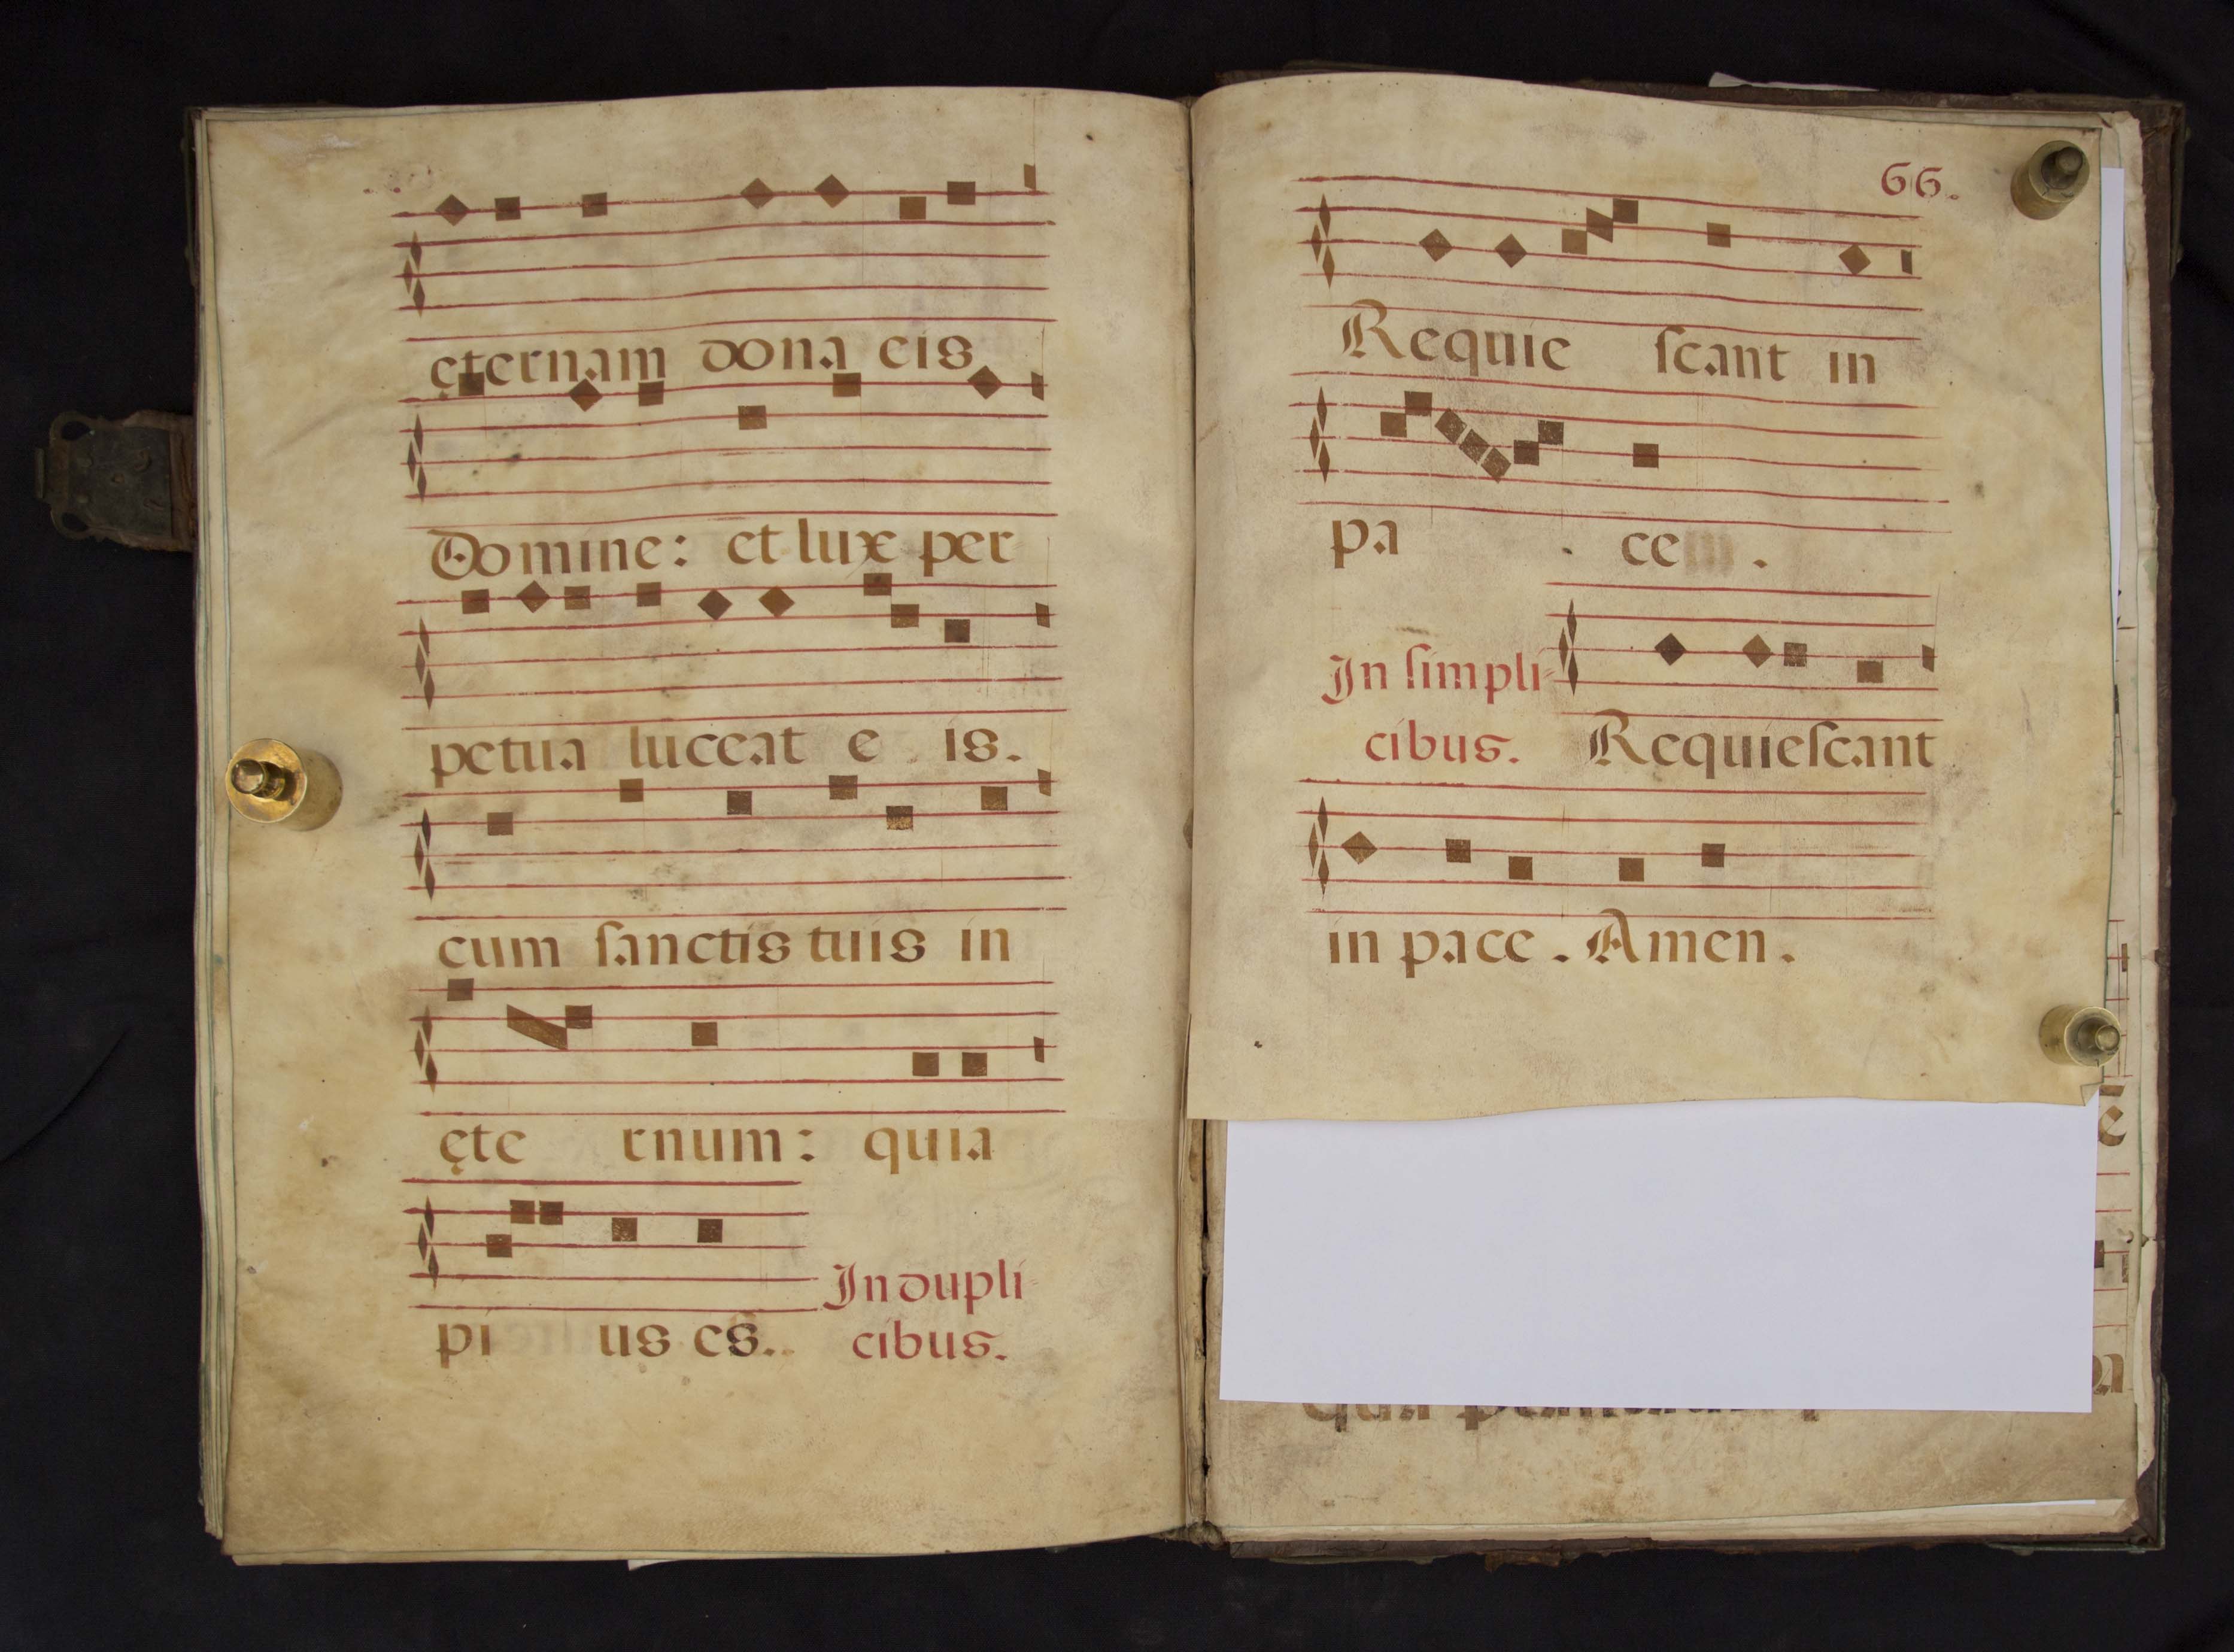 ęternam dona eis
Domine: et lux per
petua luceat e is.
cum ſanctis tuis in
ęte rnum: quia
pi us es.
In dupli
cibus.
66.
Requie ſcant in
pa . ce .
In ſimpli=
cibus.
Requieſcant
in pace. Amen.